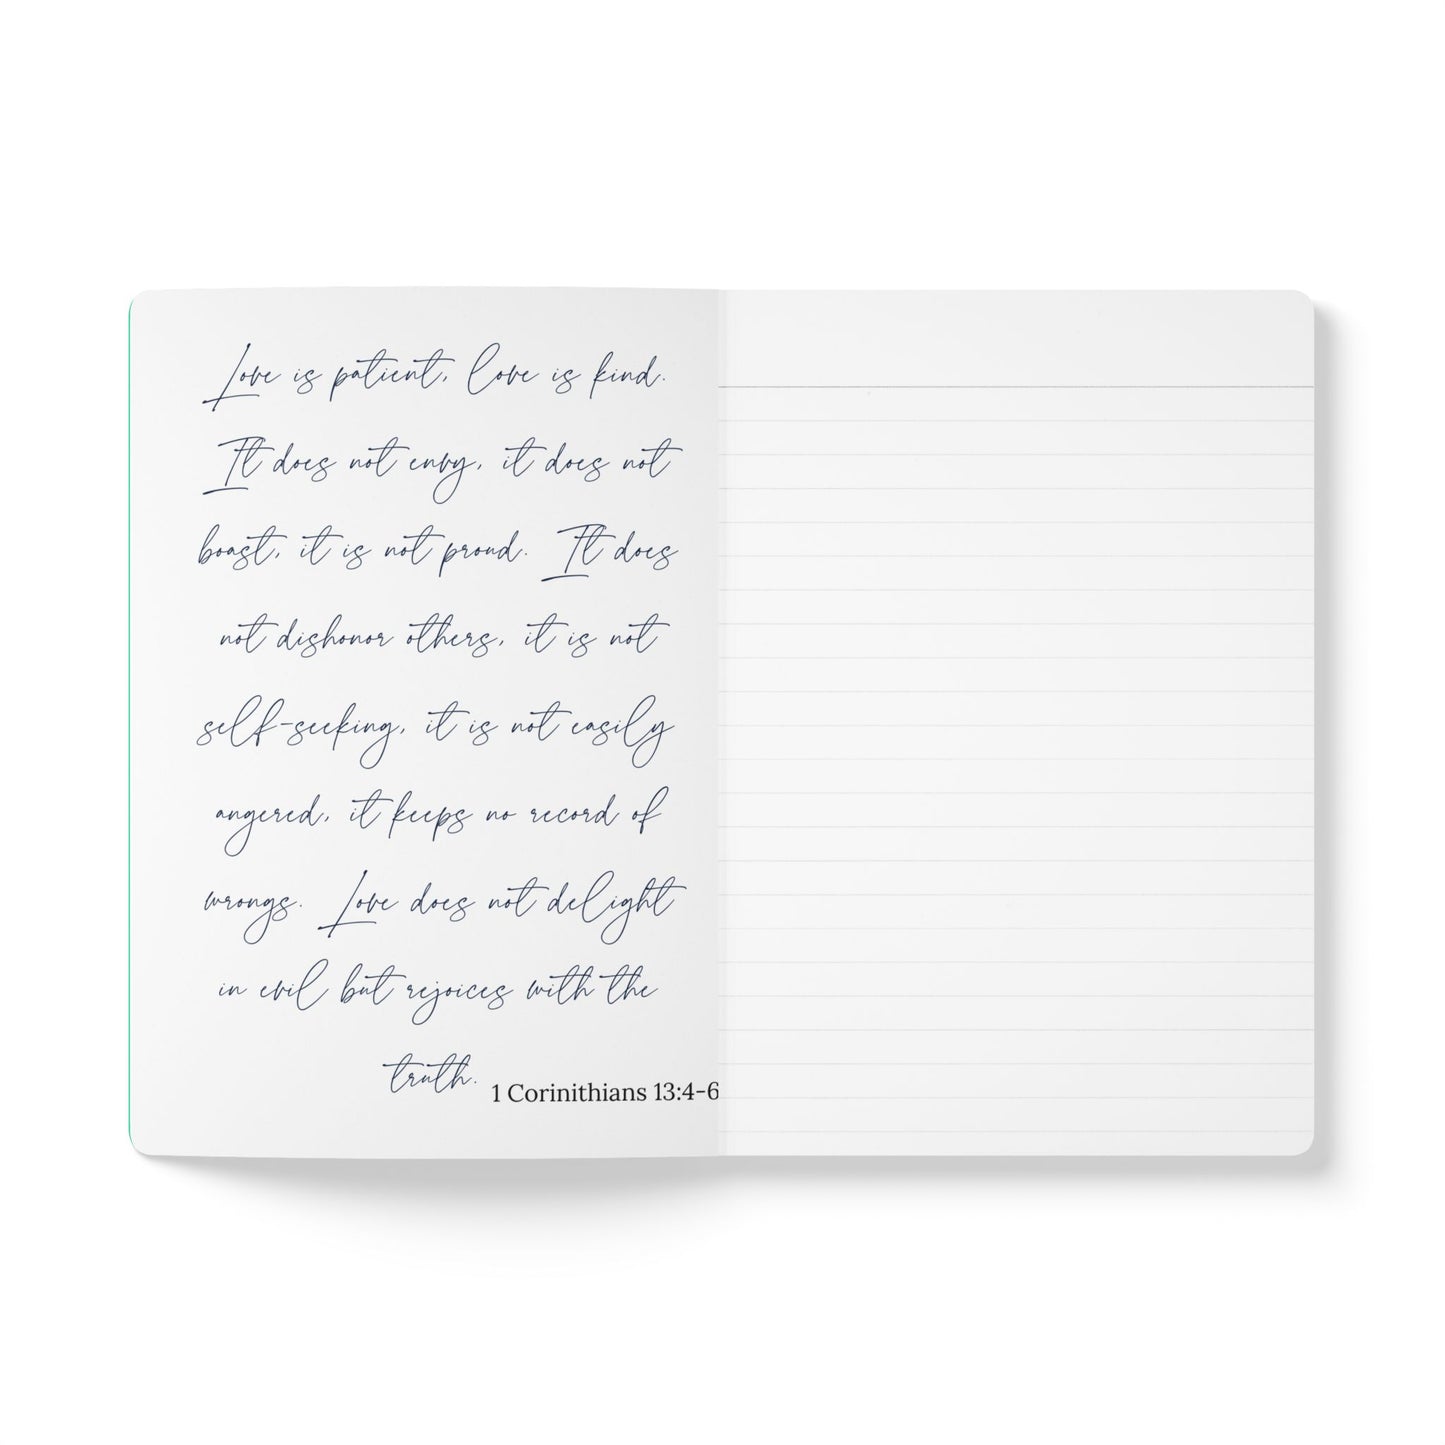 Love is patient, love is kind.
It does not envy, it does not
boast, it is not proud. It does
not dishonor others, it is not
self-seeking, it is not easily
angered, it keeps no record of
wrongs. Love does not delight
in evil but rejoices with the
truth.
1 Corinithians 13:4-6